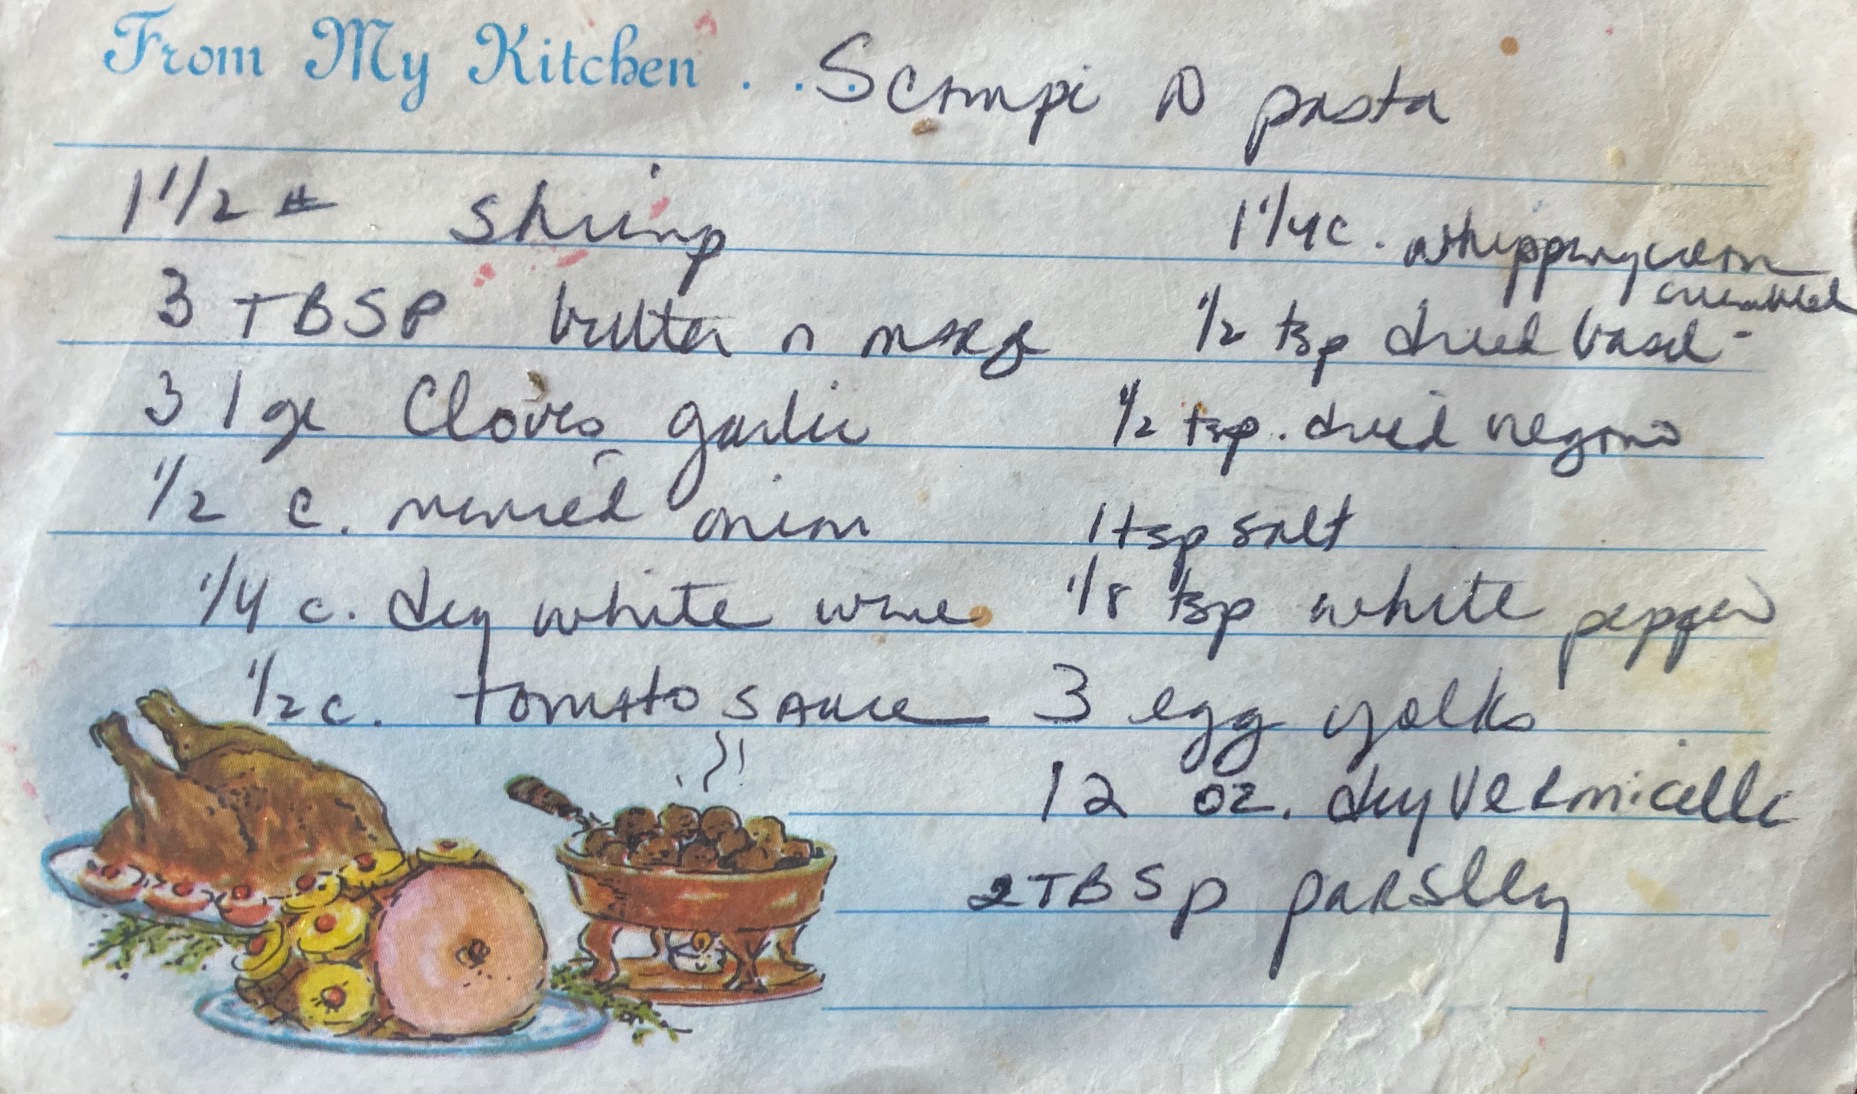 From My Kitchen ... Scampi N pasta
1 1/2 # shrimp
3 TBSP butter or marg
3 lge Cloves garlic
1/2 c. minced onion
1/4 c. dry white wine
1/2 c. tomato sauce
1 1/4 c. whipping cream
1/2 tsp dried basil - crumbled
1/2 tsp. dried oregano
1 tsp salt
1/8 tsp white pepper
3 egg yolks
12 oz. dry vermicelli
2 TBSp parsley